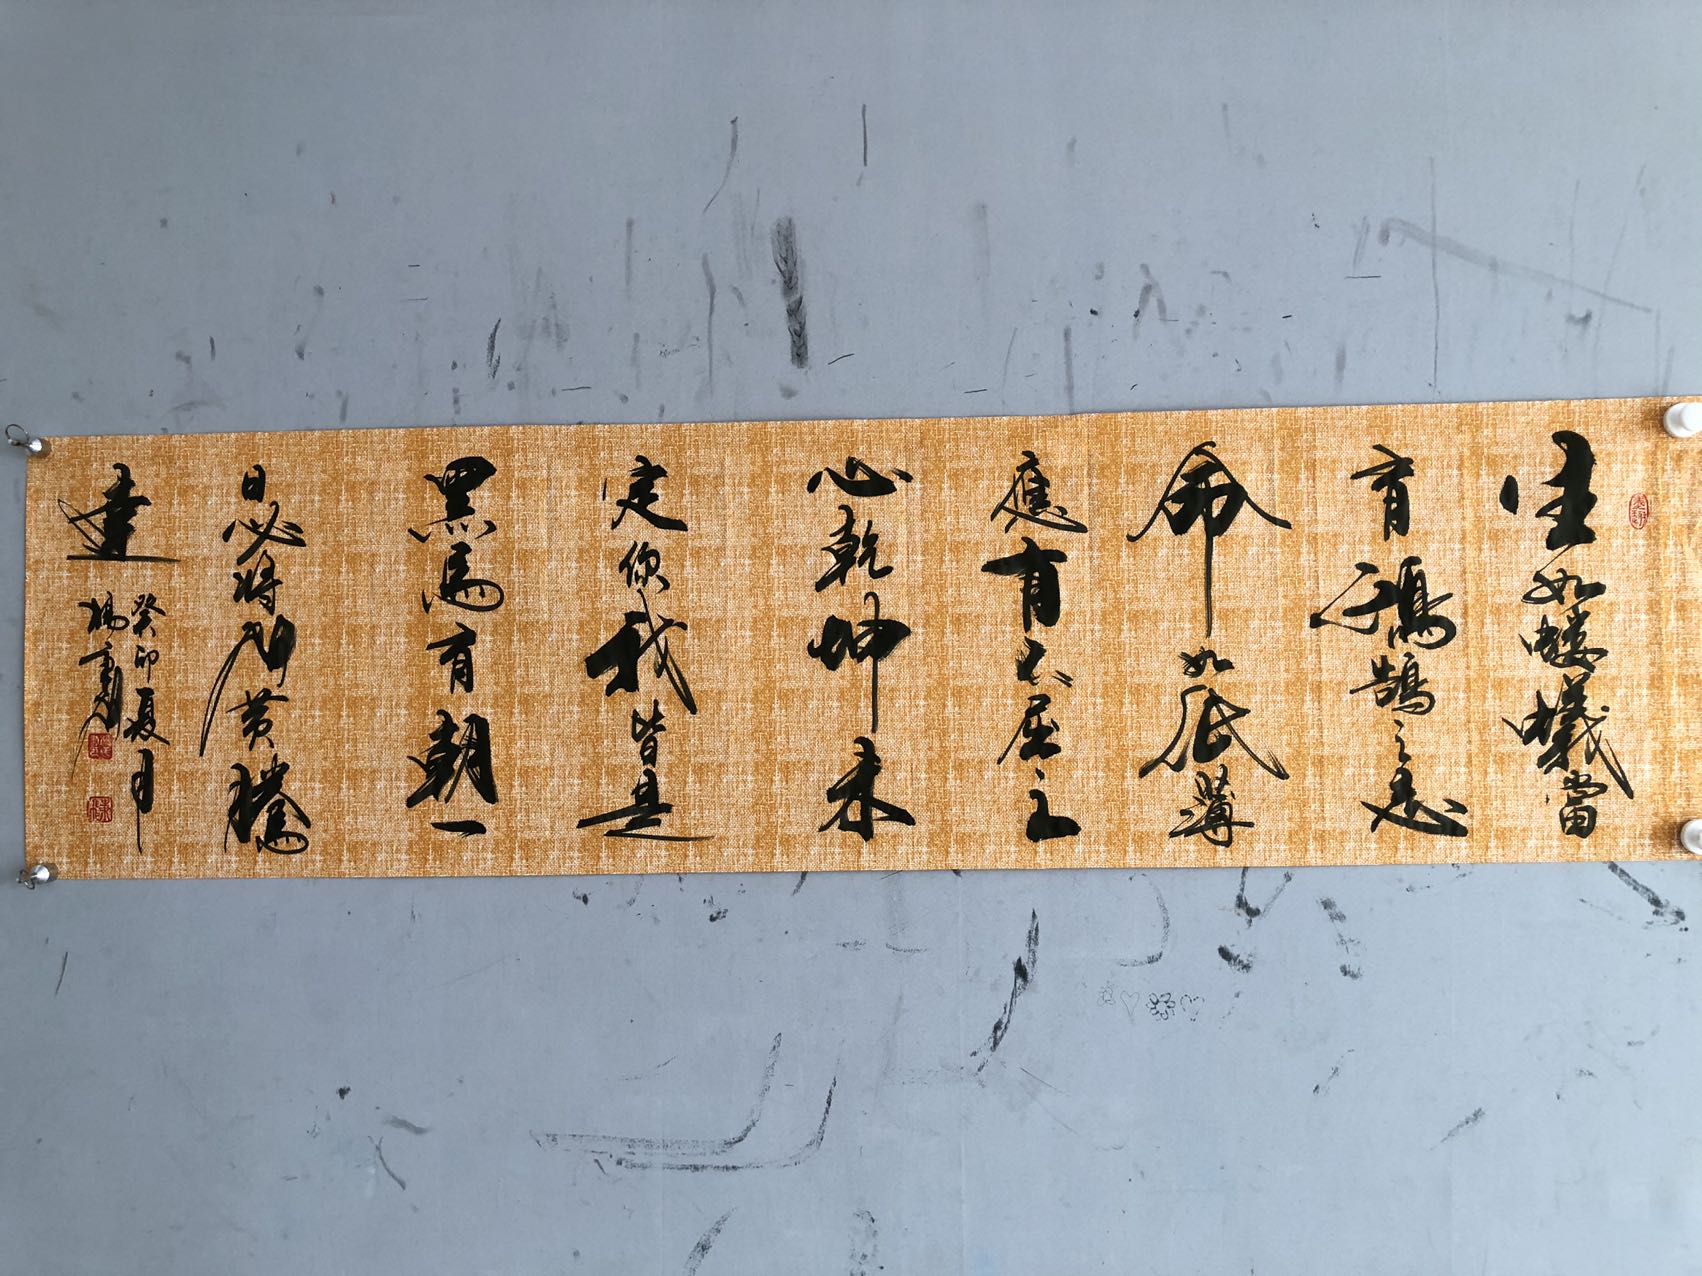 生如螻蟻當
有鴻鵠之志
命如紙薄
應有不屈之
心乾坤未
定你我皆是
黑馬有朝一
日必將飛黄騰
達
癸卯夏月
楊